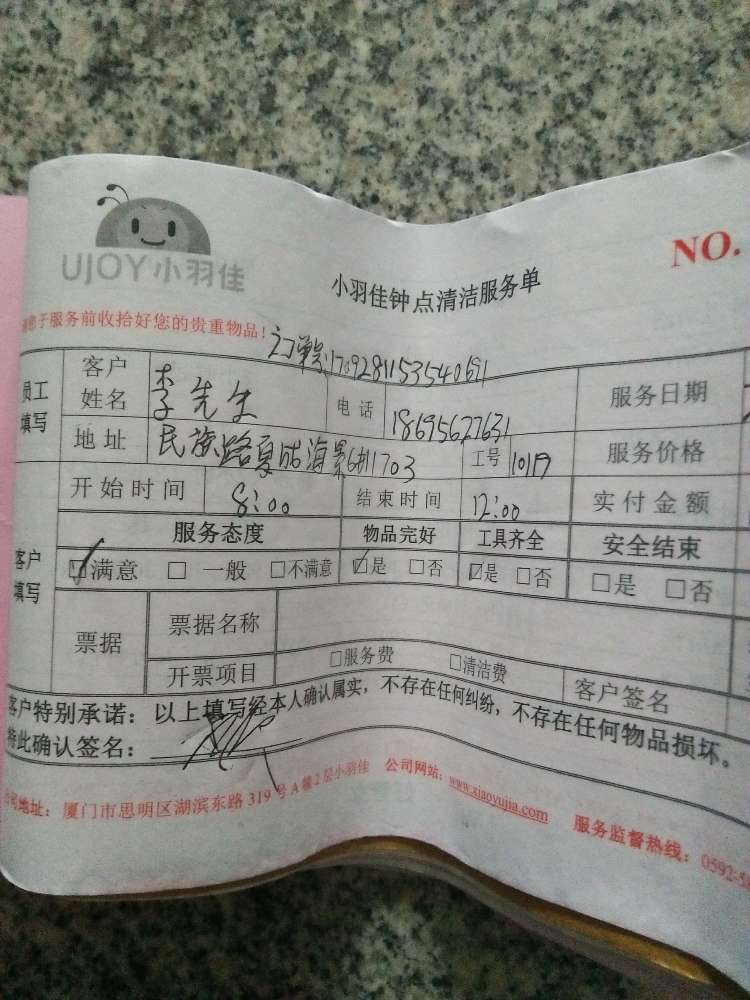 UJOY小羽佳
小羽佳钟点清洁服务单
NO.
于服务前收拾好您的贵重物品!
订单号:170928115354069
员工填写
客户姓名 李先生 电话 18695627631 服务日期
地址 民族路夏成海景 1703 工号 1019 服务价格
开始时间 8:00 结束时间 12:00 实付金额
客户填写
服务态度 物品完好 工具齐全 安全结束
☑满意 □一般 □不满意 ☑是 □否 ☑是 □否 □是 □否
票据 票据名称
开票项目 □服务费 □清洁费 客户签名
客户特别承诺:以上填写经本人确认属实,不存在任何纠纷,不存在任何物品损坏。
特此确认签名:
公司地址:厦门市思明区湖滨东路 319 号 A 幢 2 层小羽佳 公司网站:www.xiaoyujia.com 服务监督热线:0592-5